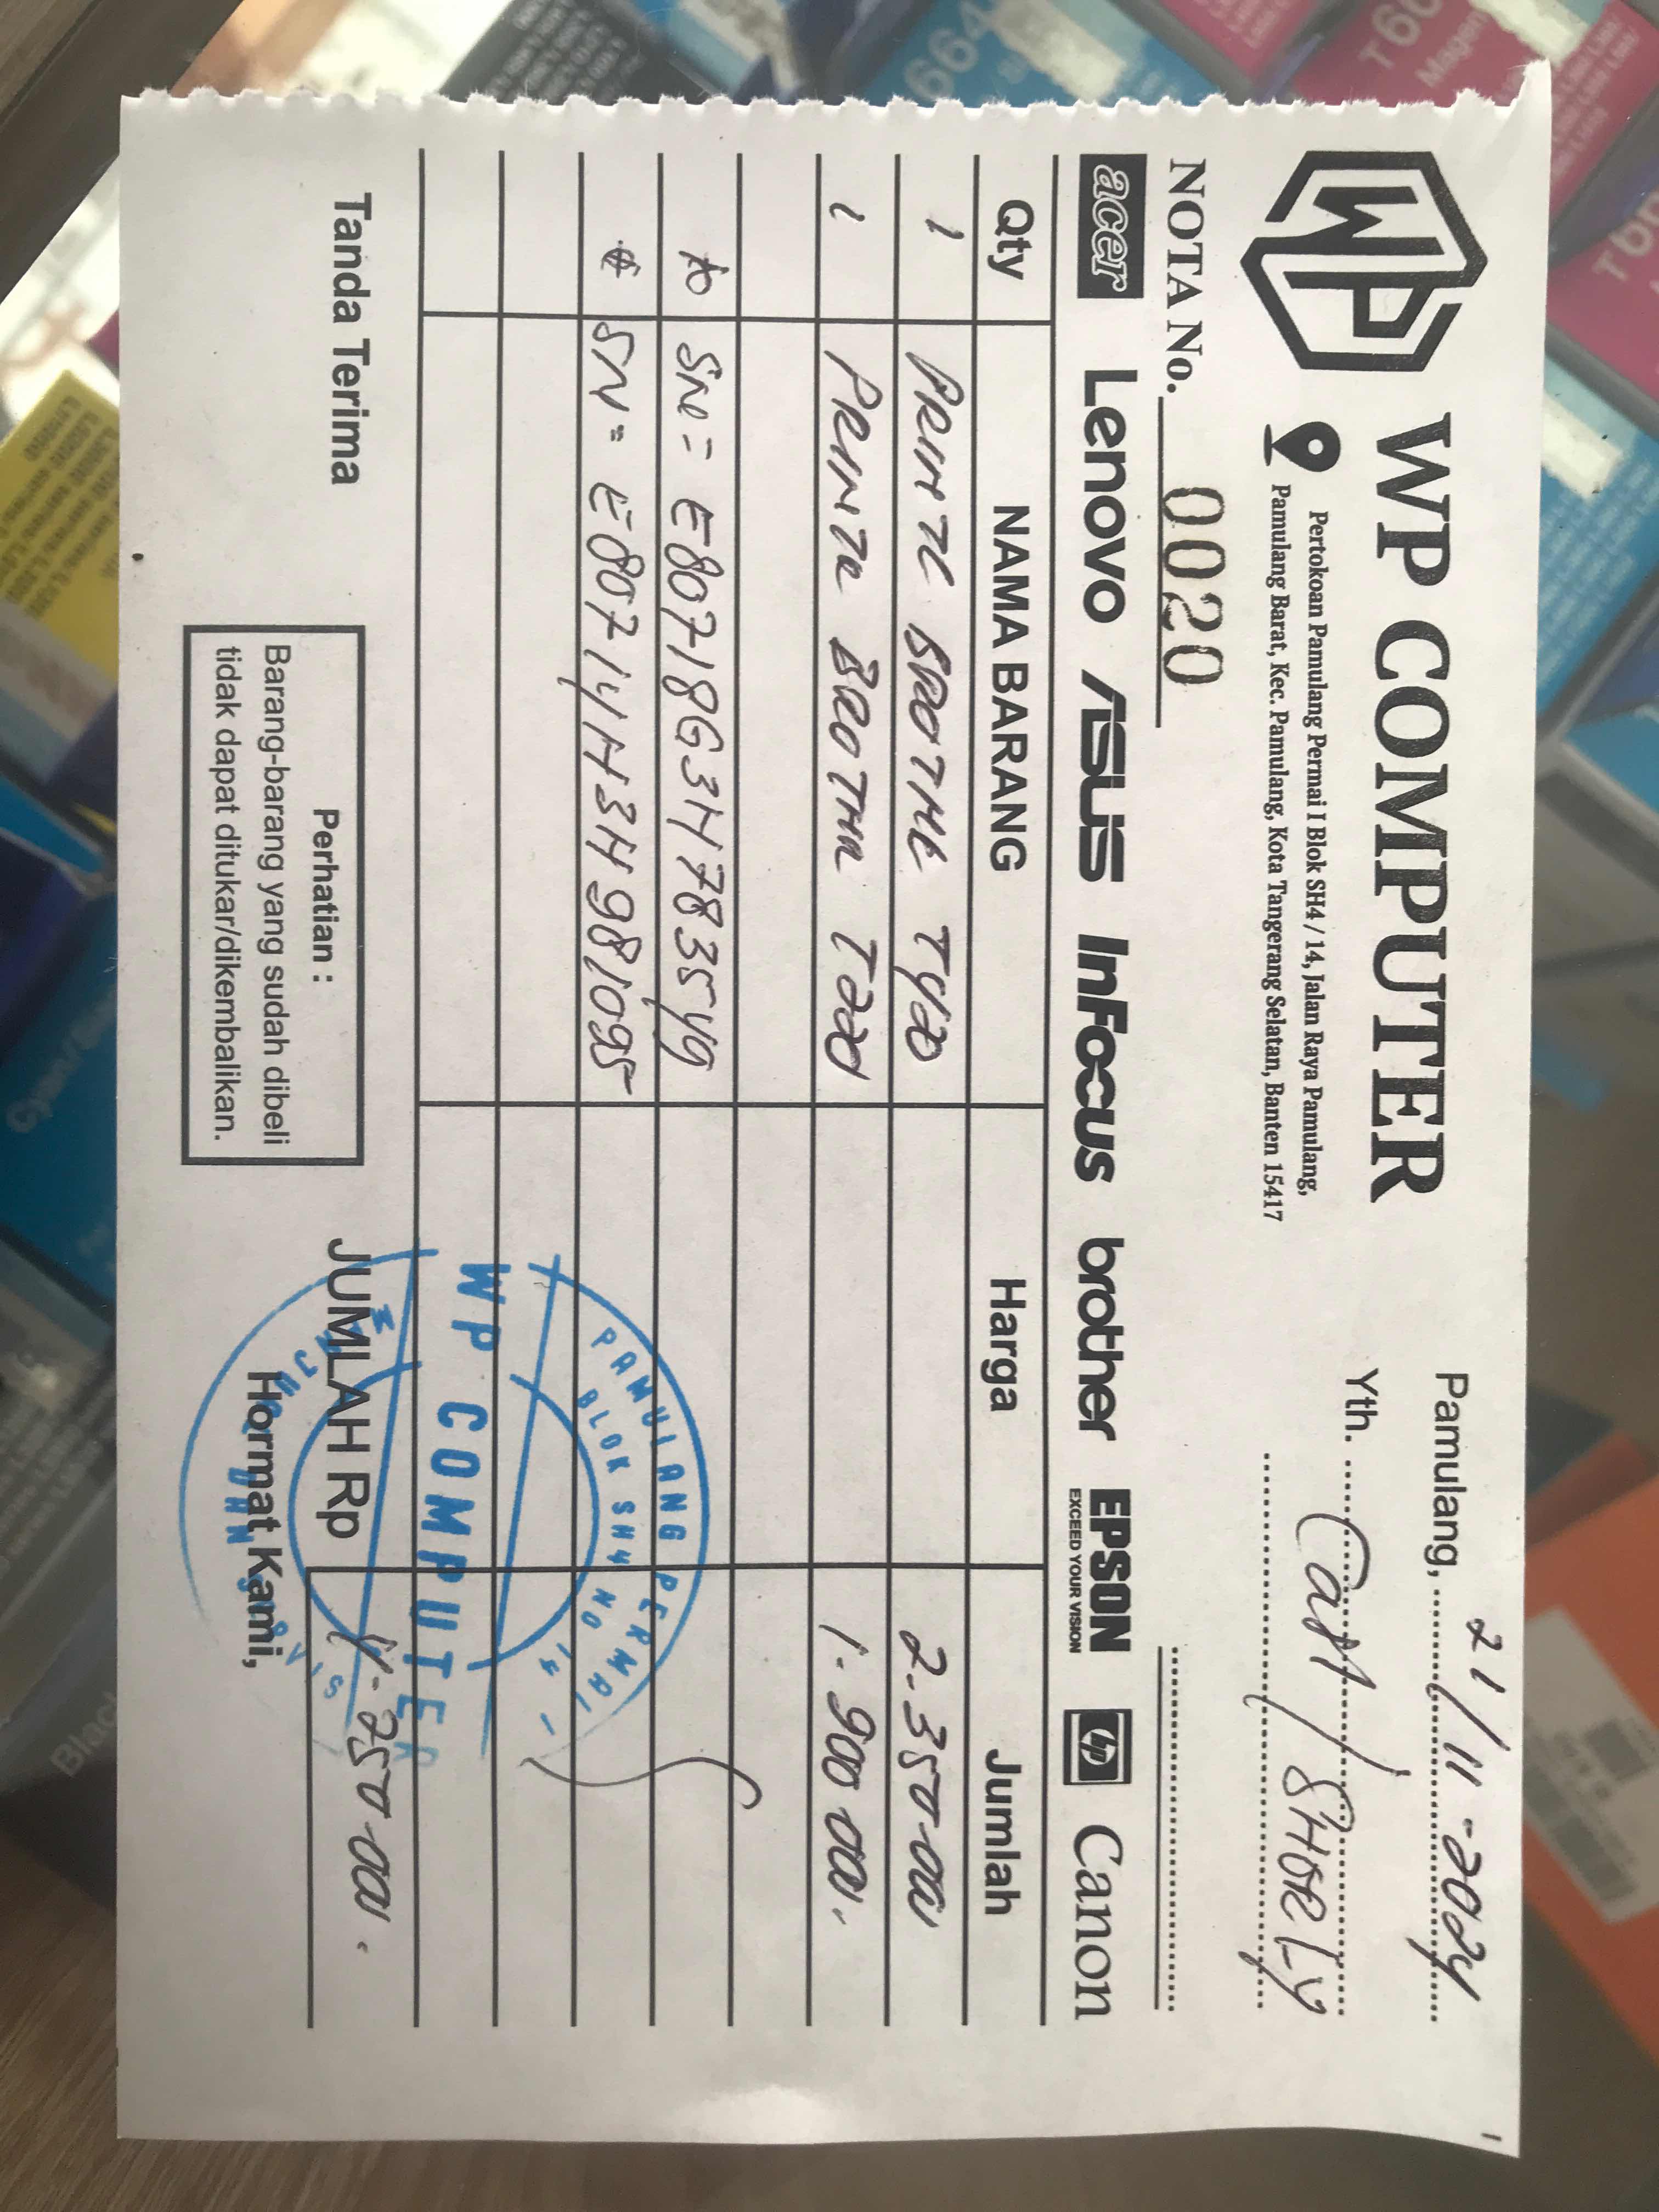 WP COMPUTER
Pertokoan Pamulang Permai I Blok SH4 / 14, Jalan Raya Pamulang,
Pamulang Barat, Kec. Pamulang, Kota Tangerang Selatan, Banten 15417
Pamulang, 21/11-2024
Yth. Cash / SHOELY
NOTA No. 0020
acer Lenovo ASUS InFocus brother EPSON EXCEED YOUR VISION hp Canon
Qty NAMA BARANG Harga Jumlah
1 BROTHE 2.350.000
1 BROTHER T220 1.900.000.
SN = E80718G3H783549
SN = E80714H3H981095
JUMLAH Rp 4.250.000.
Tanda Terima
Perhatian :
Barang-barang yang sudah dibeli
tidak dapat ditukar/dikembalikan.
Hormat Kami,
PAMULANG PERMAI
BLOK SH4 NO 14
WP COMPUTER
664
T66
Magen
Cyan
Black